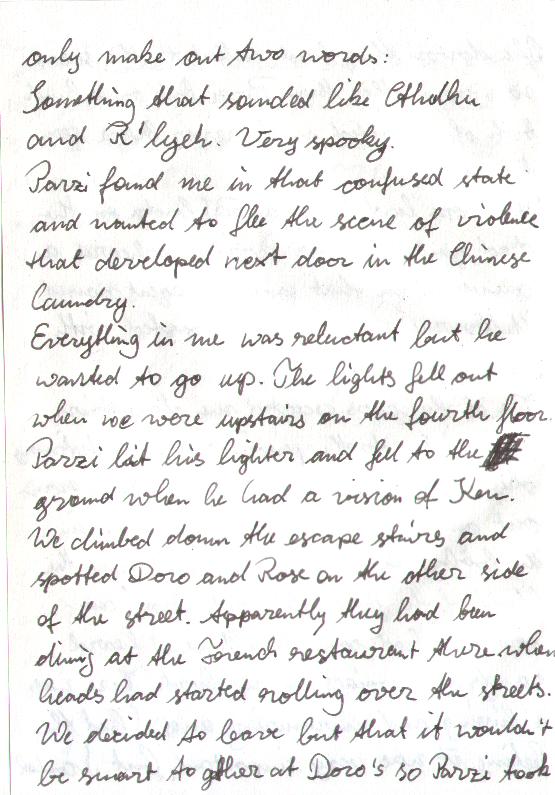 only make out two words:
Something that sounded like Cthulhu
and R'lyeh. Very spooky.
Parzi found me in that confused state
and wanted to flee the scene of violence
that developed next door in the Chinese
Laundry.
Everything in me was reluctant but he
wanted to go up. The lights fell out
when we were upstairs on the fourth floor.
Parzi lit his lighter and fell to the
ground when he had a vision of Ken.
We climbed down the escape stairs and
spotted Doro and Rose on the other side
of the street. Apparently they had been
dining at the French restaurant there when
heads had started rolling over the streets.
We decided to leave but that it wouldn't
be smart to gather at Doro's so Parzi took